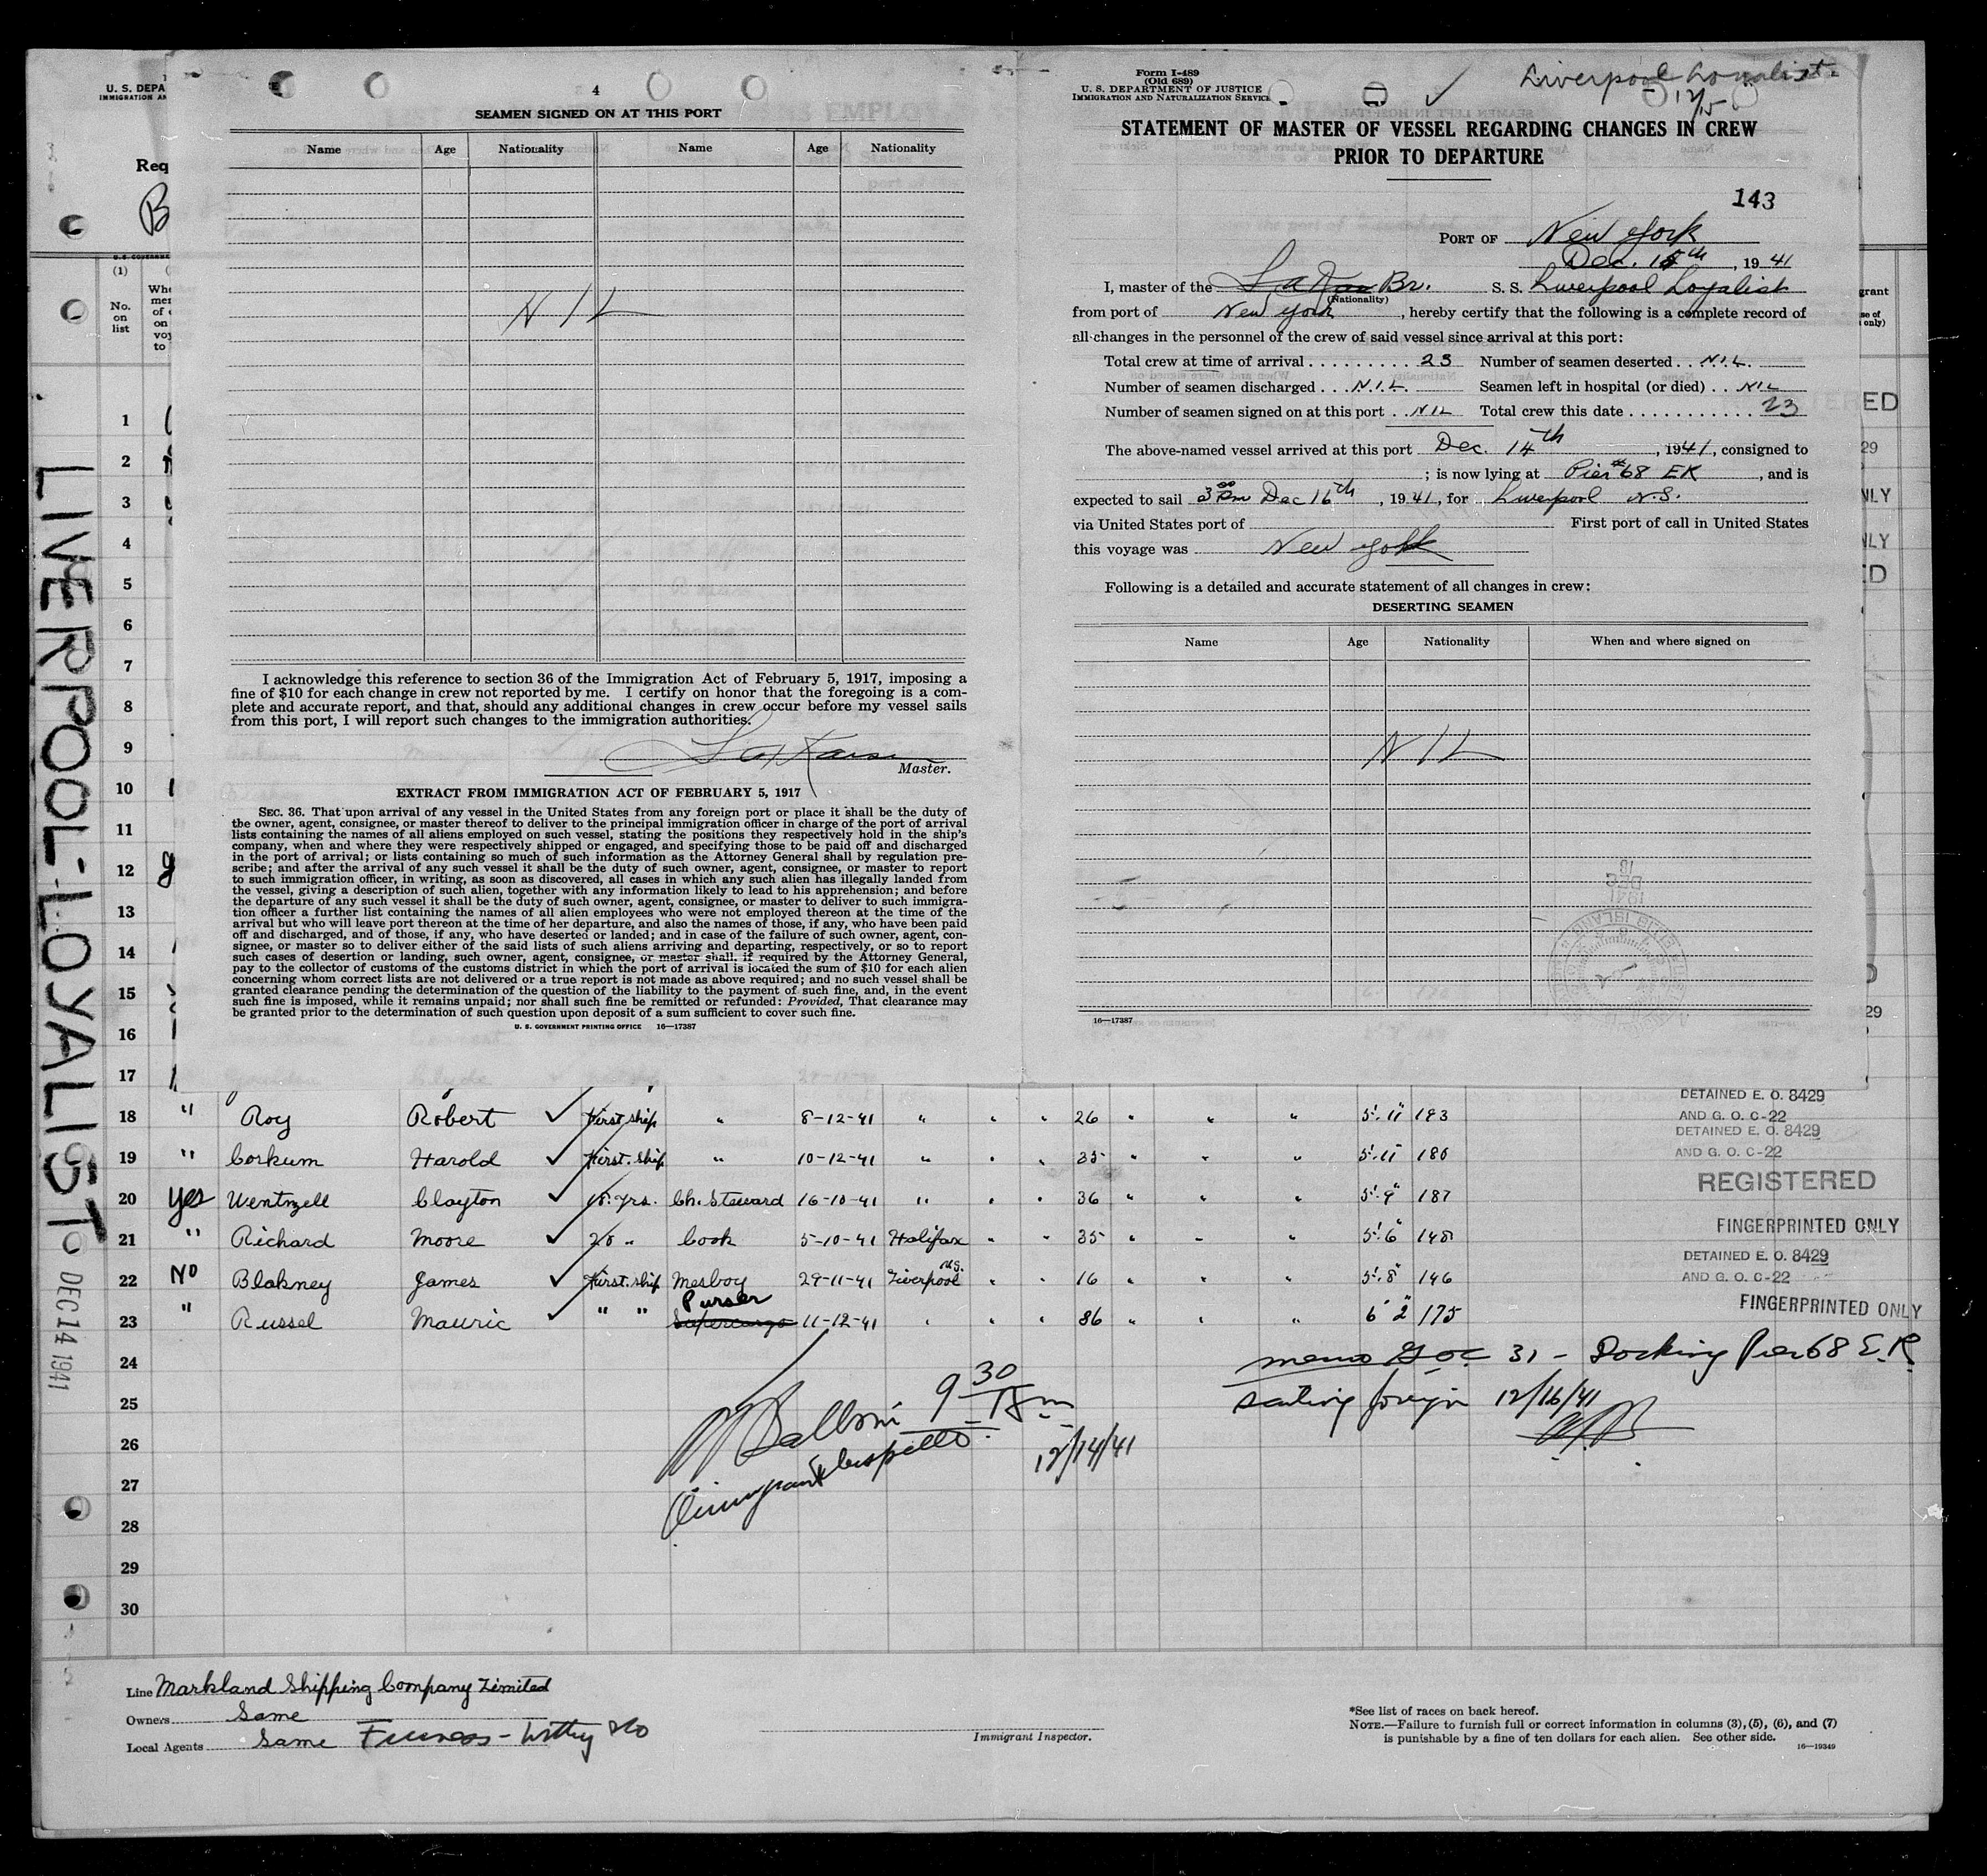 U. S. DEPA
IMMIGRATION AN
Req
B
(1)
No.
on
list
LIVERPOOL-LOYALIST
DEC 14 1941
4
SEAMEN SIGNED ON AT THIS PORT
Name Age Nationality Name Age Nationality
NIL
I acknowledge this reference to section 36 of the Immigration Act of February 5, 1917, imposing a
fine of $10 for each change in crew not reported by me. I certify on honor that the foregoing is a com-
plete and accurate report, and that, should any additional changes in crew occur before my vessel sails
from this port, I will report such changes to the immigration authorities.
Master.
EXTRACT FROM IMMIGRATION ACT OF FEBRUARY 5, 1917
SEC. 36. That upon arrival of any vessel in the United States from any foreign port or place it shall be the duty of
the owner, agent, consignee, or master thereof to deliver to the principal immigration officer in charge of the port of arrival
lists containing the names of all aliens employed on such vessel, stating the positions they respectively hold in the ship's
company, when and where they were respectively shipped or engaged, and specifying those to be paid off and discharged
in the port of arrival; or lists containing so much of such information as the Attorney General shall by regulation pre-
scribe; and after the arrival of any such vessel it shall be the duty of such owner, agent, consignee, or master to report
to such immigration officer, in writing, as soon as discovered, all cases in which any such alien has illegally landed from
the vessel, giving a description of such alien, together with any information likely to lead to his apprehension; and before
the departure of any such vessel it shall be the duty of such owner, agent, consignee, or master to deliver to such immigra-
tion officer a further list containing the names of all alien employees who were not employed thereon at the time of the
arrival but who will leave port thereon at the time of her departure, and also the names of those, if any, who have been paid
off and discharged, and of those, if any, who have deserted or landed; and in case of the failure of such owner, agent, con-
signee, or master so to deliver either of the said lists of such aliens arriving and departing, respectively, or so to report
such cases of desertion or landing, such owner, agent, consignee, or master shall, if required by the Attorney General,
pay to the collector of customs of the customs district in which the port of arrival is located the sum of $10 for each alien
concerning whom correct lists are not delivered or a true report is not made as above required; and no such vessel shall be
granted clearance pending the determination of the question of the liability to the payment of such fine, and, in the event
such fine is imposed, while it remains unpaid; nor shall such fine be remitted or refunded: Provided, That clearance may
be granted prior to the determination of such question upon deposit of a sum sufficient to cover such fine.
U. S. GOVERNMENT PRINTING OFFICE 16—17387
Form I-489
(Old 689)
U. S. DEPARTMENT OF JUSTICE
IMMIGRATION AND NATURALIZATION SERVICE
Liverpool Loyalist
12/15
STATEMENT OF MASTER OF VESSEL REGARDING CHANGES IN CREW
PRIOR TO DEPARTURE
143
PORT OF New York
Dec. 15th, 19 41
I, master of the Br. S. S. Liverpool Loyalist
(Nationality)
from port of New York, hereby certify that the following is a complete record of
all changes in the personnel of the crew of said vessel since arrival at this port:
Total crew at time of arrival 23 Number of seamen deserted NIL
Number of seamen discharged N.I.L. Seamen left in hospital (or died) NIL
Number of seamen signed on at this port NIL Total crew this date 23
The above-named vessel arrived at this port Dec. 14th, 1941, consigned to
; is now lying at Pier #68 ER, and is
expected to sail 3 00 Pm Dec 16th, 19 41, for Liverpool N.S.
via United States port of First port of call in United States
this voyage was New York
Following is a detailed and accurate statement of all changes in crew:
DESERTING SEAMEN
Name Age Nationality When and where signed on
NIL
16—17387
1
2
3
4
5
6
7
8
9
10
11
12
13
14
15
16
17
DETAINED E. O. 8429
18 " Roy Robert ✓ First ship " 8-12-41 " " " 26 " " " 5'-11" 183 AND G. O. C-22
DETAINED E. O. 8429
19 " Corkum Harold ✓ First ship " 10-12-41 " " " 35 " " " 5'-11" 180 AND G. O. C-22
20 Yes Wentzell Clayton ✓ 18 yrs. Ch. Steward 16-10-41 " " " 36 " " " 5'-9" 187 REGISTERED
21 " Richard Moore ✓ 20 " Cook 5-10-41 Halifax " " 35 " " " 5'-6" 148 FINGERPRINTED ONLY
DETAINED E. O. 8429
22 No Blakney James ✓ First ship Mesboy 29-11-41 Liverpool N.S. " " 16 " " " 5'-8" 146 AND G. O. C-22
Purser
23 " Russel Mauric ✓ " " Supercargo 11-12-41 " " " 36 " " " 6' 2" 175 FINGERPRINTED ONLY
24
25
26
27
28
29
30
9 30
12/14/41
memo G.O.C. 31 - Docking Pier 68 E.R.
sailing foreign 12/16/41
Line Markland Shipping Company Limited
Owners Same
Local Agents Same Furness-Withy & Co
Immigrant Inspector.
*See list of races on back hereof.
NOTE.—Failure to furnish full or correct information in columns (3), (5), (6), and (7)
is punishable by a fine of ten dollars for each alien. See other side.
16—19349